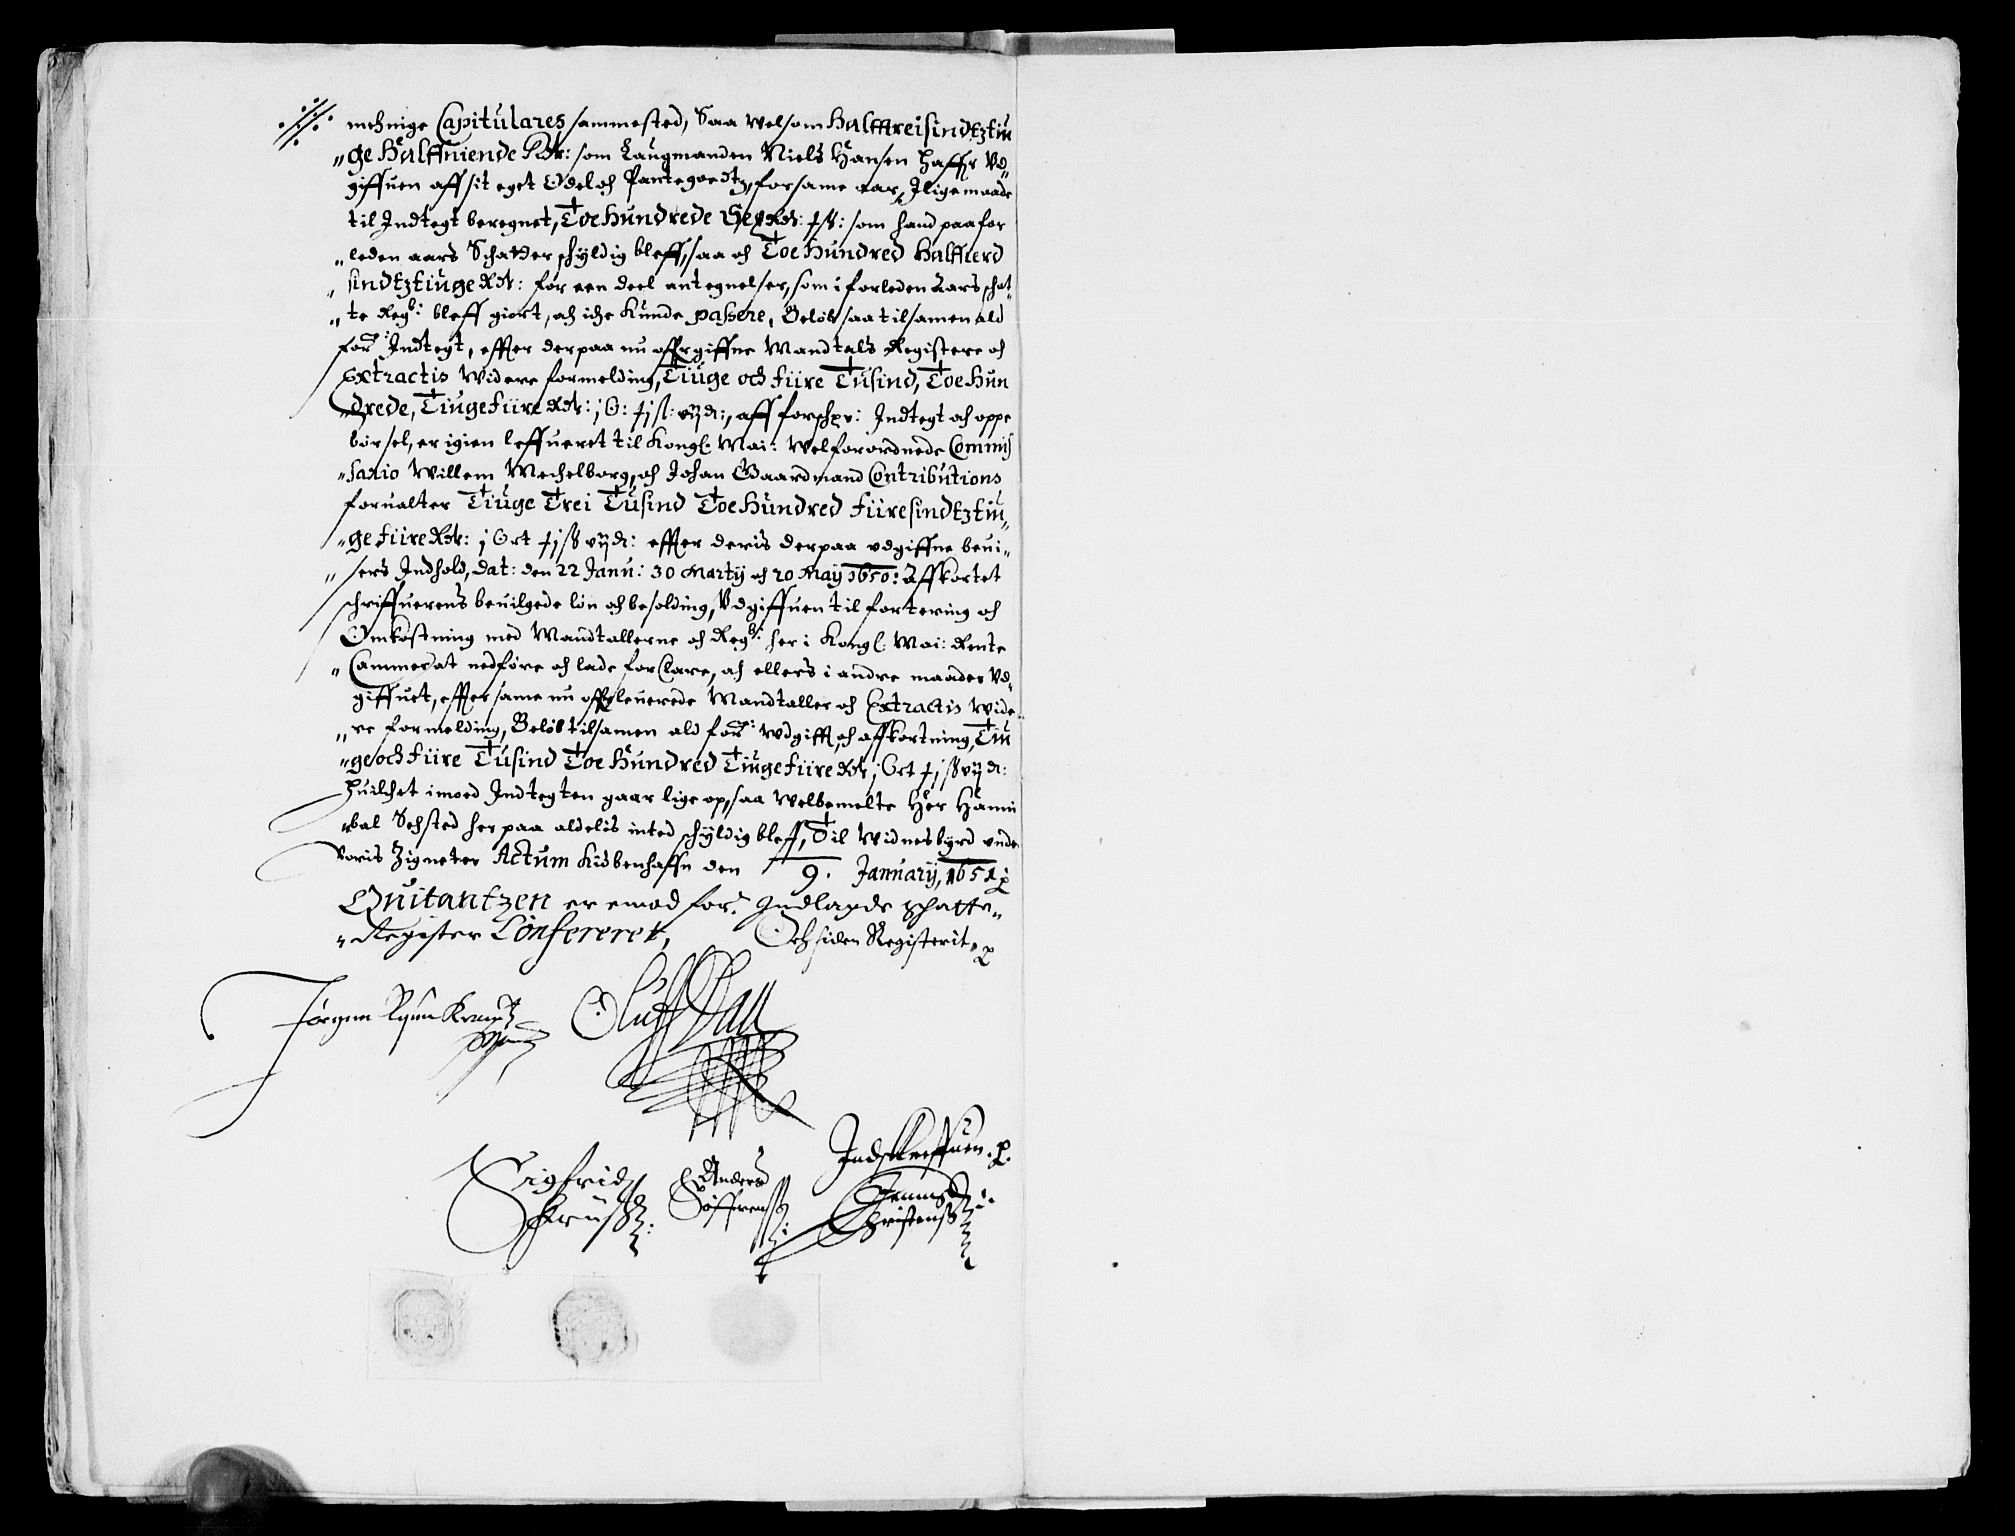 menige Capitulares sammested, Saa velsom Halfftreisindtztiu
„ge Halffniende Rdr: som Laugmanden Niels Hansen haffr vd„
giffuen aff sit eget Odel och Pantegoedtz, for same aar, Jligemaade
til Indtegt beregnet, Toe Hundrede Sex Rdr: som hand paa for
„leden aars Schatter schyldig bleff, saa och Toe Hundred Halffierd
„sindtztiuge Rdr: for een deel antegnelser, som i forleden Aars schat„
„te Regb: bleff giort, och iche Kunde passere, Beløb saa tilsamen ald
for: Indtegt, effter derpaa nu offrgiffne Mandtals Registere och
Extractis videre formelding, Tiuge och fiire Tusind, Toe Hun
„drede, Tiuge fiire Rdr: j O: ß: vij d:, aff forschr: Indtegt och oppe
børsel, er igien leffueret til Kongl: Mai: Velforordnede Commis
„sario Willem Mechelborg, och Johan Gaardmand Contributions
forualter Tiuge Trei Tusind Toe Hundred fiiresindtztiu„
„ge fiire Rdr: j Ort ß vij d: effter deris derpaa vdgiffne beui„
„sers Indhold, dat: den 22 Janu: 30 Marty och 20 May 1650: Affkortet
schriffuerens beuilgede løn och besolding, Vdgiffuen til fortering och
Omkostning med Mandtallerne och Regb: her i Kongl: Mai: Rente
„Cammer at nedføre och lade forClare, och ellers i andre maader Vd„
giffuet, effter same nu offrleuerede Mandtaller och Extractis vide
„re formelding, Beløb tilsamen ald for: vdgifft, och affkortning, Tiu
„ge och fiire Tusind Toe Hundred Tiuge fiire Rdr j Ort ß vij d:
huilchet imoed Indtegten gaar lige op, saa Velbemelte Her Hanni
„bal Sehsted her paa aldelis inted schyldig bleff, Til Vidnesbyrd under
voris Zigneter Actum Kiøbenhaffn den 9. January, 1651
Quitantzen er emod for: Indlagde schatte„
„Register Confereret, Och siden Registerit.
Jørgen Kruse
Oluff Dall
Indschreffuen.
Sigfrid Anders Jenns
Kruse Søffrenß Christenß